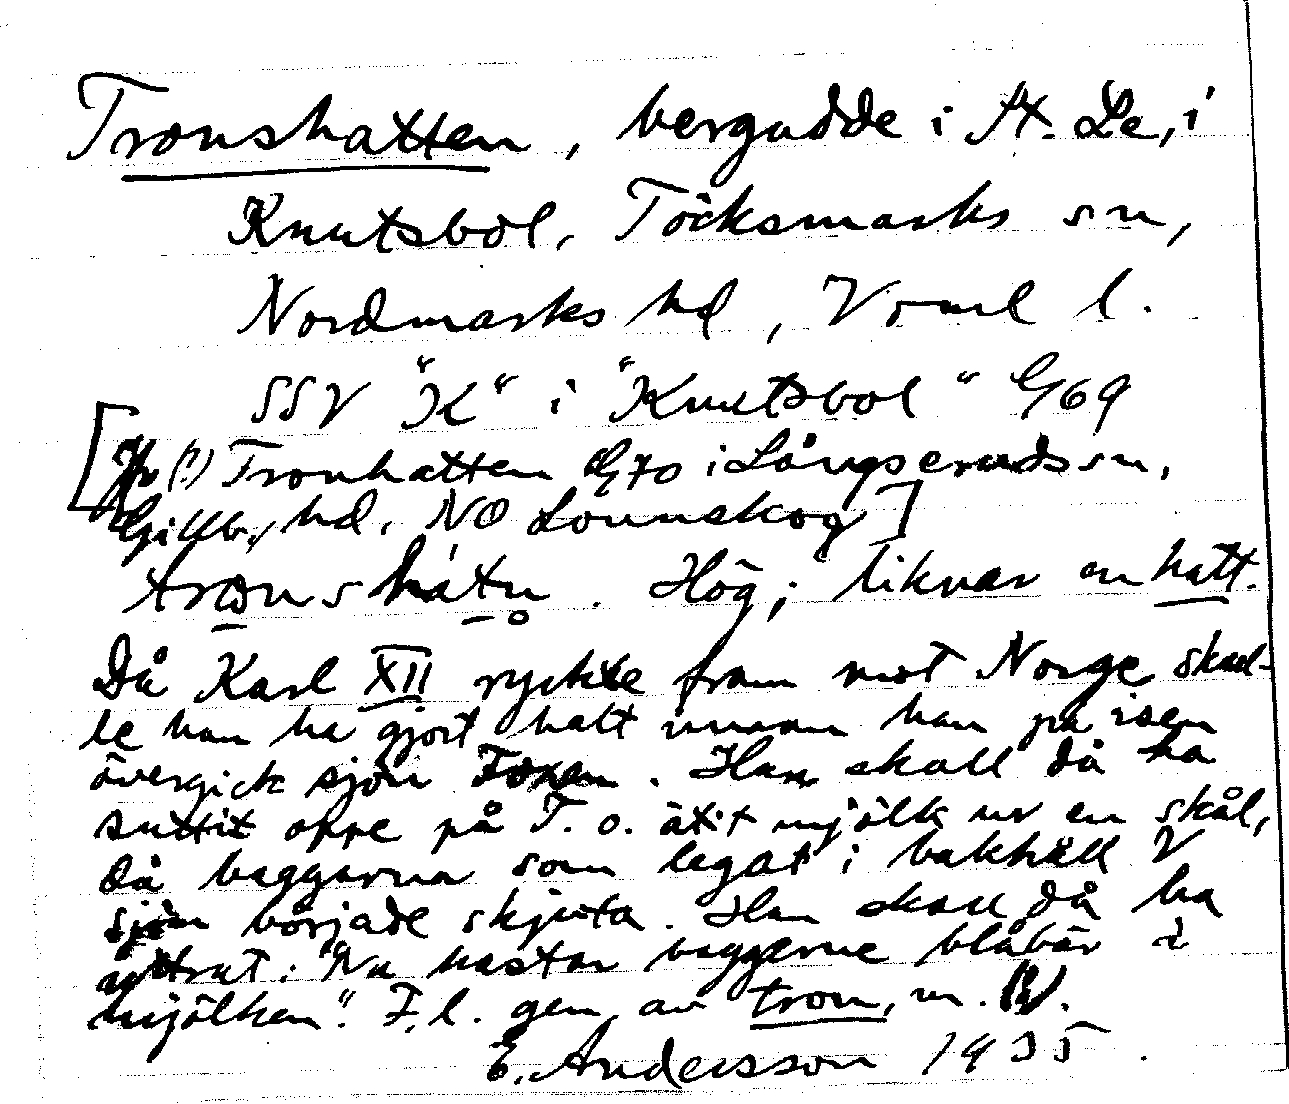 Tronshatten, bergudde i St. Le, i
Knutsbol, Töcksmarks sn,
Nordmarks hd, Vrml l.
SSV "K" i "Knutsbol" G69
[Jfr (?) Tronhatten G70 i Långseruds sn,
Gillb. hd, NO Lounskog]
tronshátn. Hög; liknar en hatt.
Då Karl XII ryckte fram mot Norge skul-
le han ha gjort halt innan han på isen
övergick sjön Foxen. Han skall då ha
suttit oppe på T. o. ätit mjölk ur en skål,
då baggarna som legat i bakhåll V
sjön började skjuta. Han skall då ha
yttrat: "Nu kastar baggerne blåbär i
mjölken". F.l. gen. av tron, m.
E. Andersson 1935